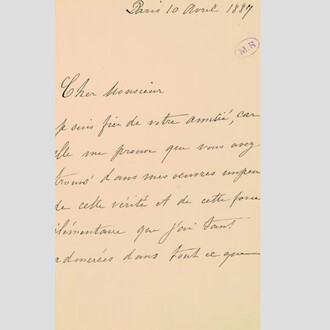 Paris 10 Avril 1887
M.R
Cher Monsieur
je suis fier de votre amitié, car
elle me prouve que vous avez
trouvé dans mes oeuvres un peu
de cette vérité et de cette force
élémentaire que j'ai tant
admirées dans tout ce que